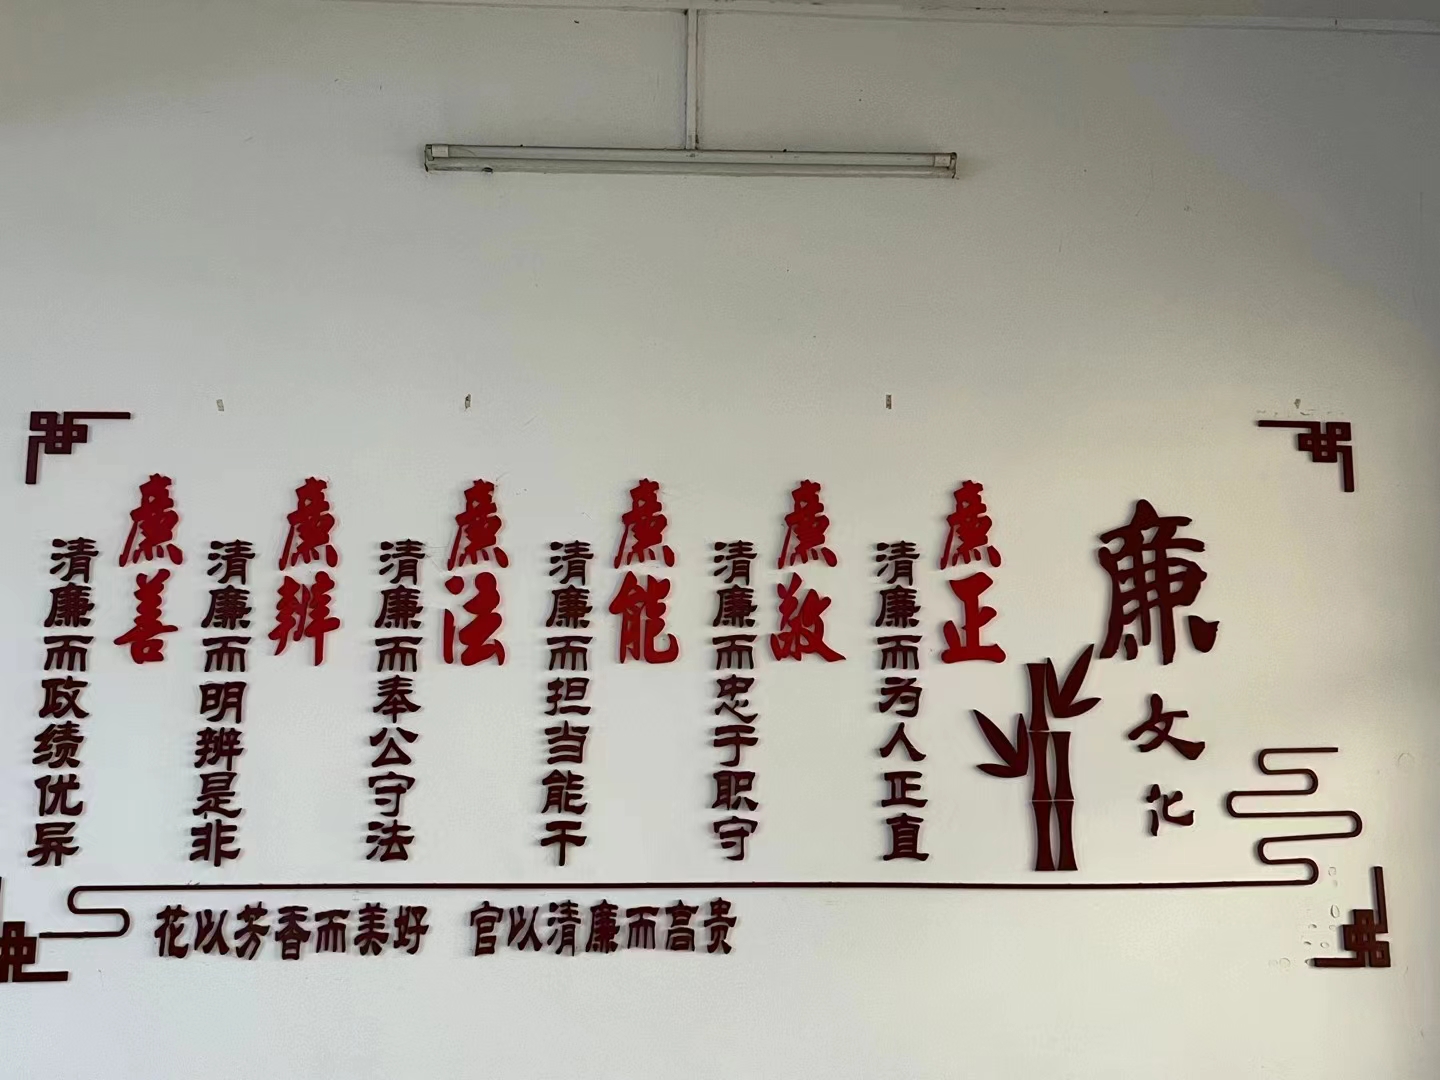 廉文化
廉正
清廉而为人正直
廉敬
清廉而忠于职守
廉能
清廉而担当能干
廉法
清廉而奉公守法
廉辨
清廉而明辨是非
廉善
清廉而政绩优异
花以芳香而美好 官以清廉而高贵